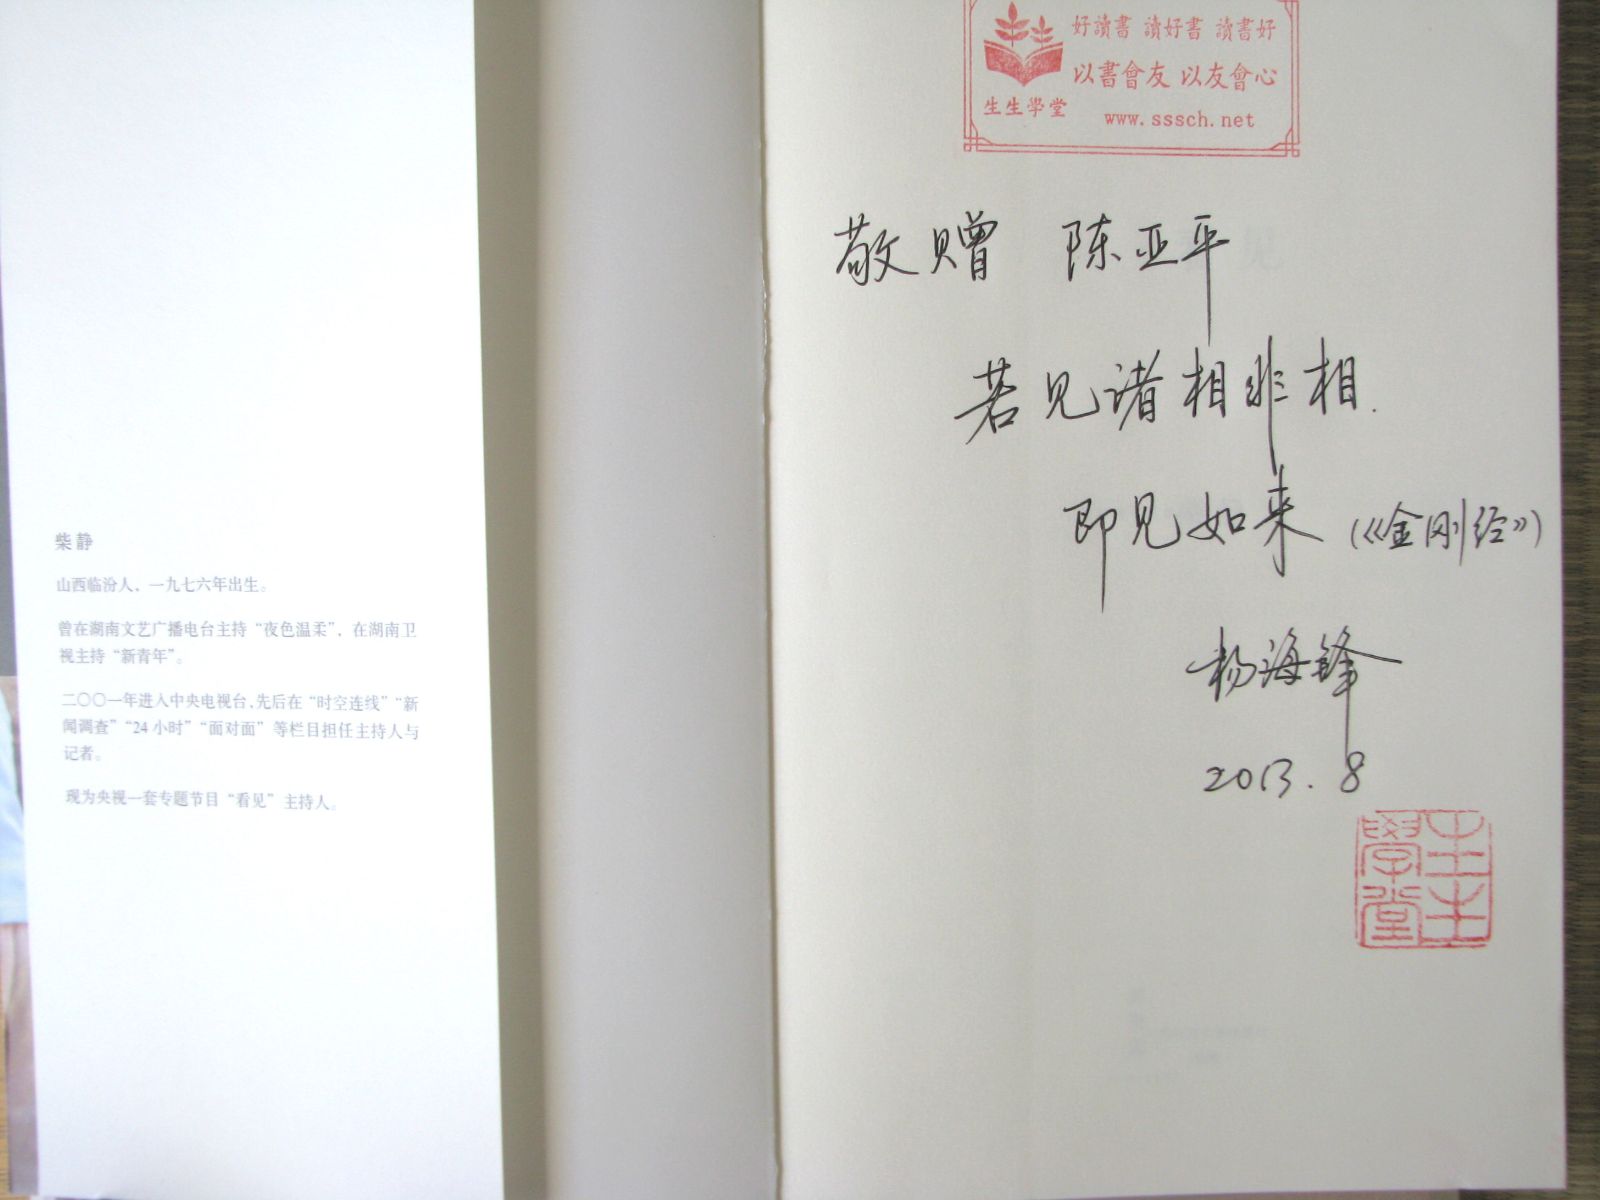 柴静
山西临汾人，一九七六年出生。
曾在湖南文艺广播电台主持“夜色温柔”，在湖南卫
视主持“新青年”。
二〇〇一年进入中央电视台，先后在“时空连线”“新
闻调查”“24小时”“面对面”等栏目担任主持人与
记者。
现为央视一套专题节目“看见”主持人。
好讀書 讀好書 讀書好
以書會友 以友會心
生生學堂
www.sssch.net
敬赠 陈亚平
若见诸相非相.
即见如来(《金刚经》)
杨海锋
2013.8
生生學堂